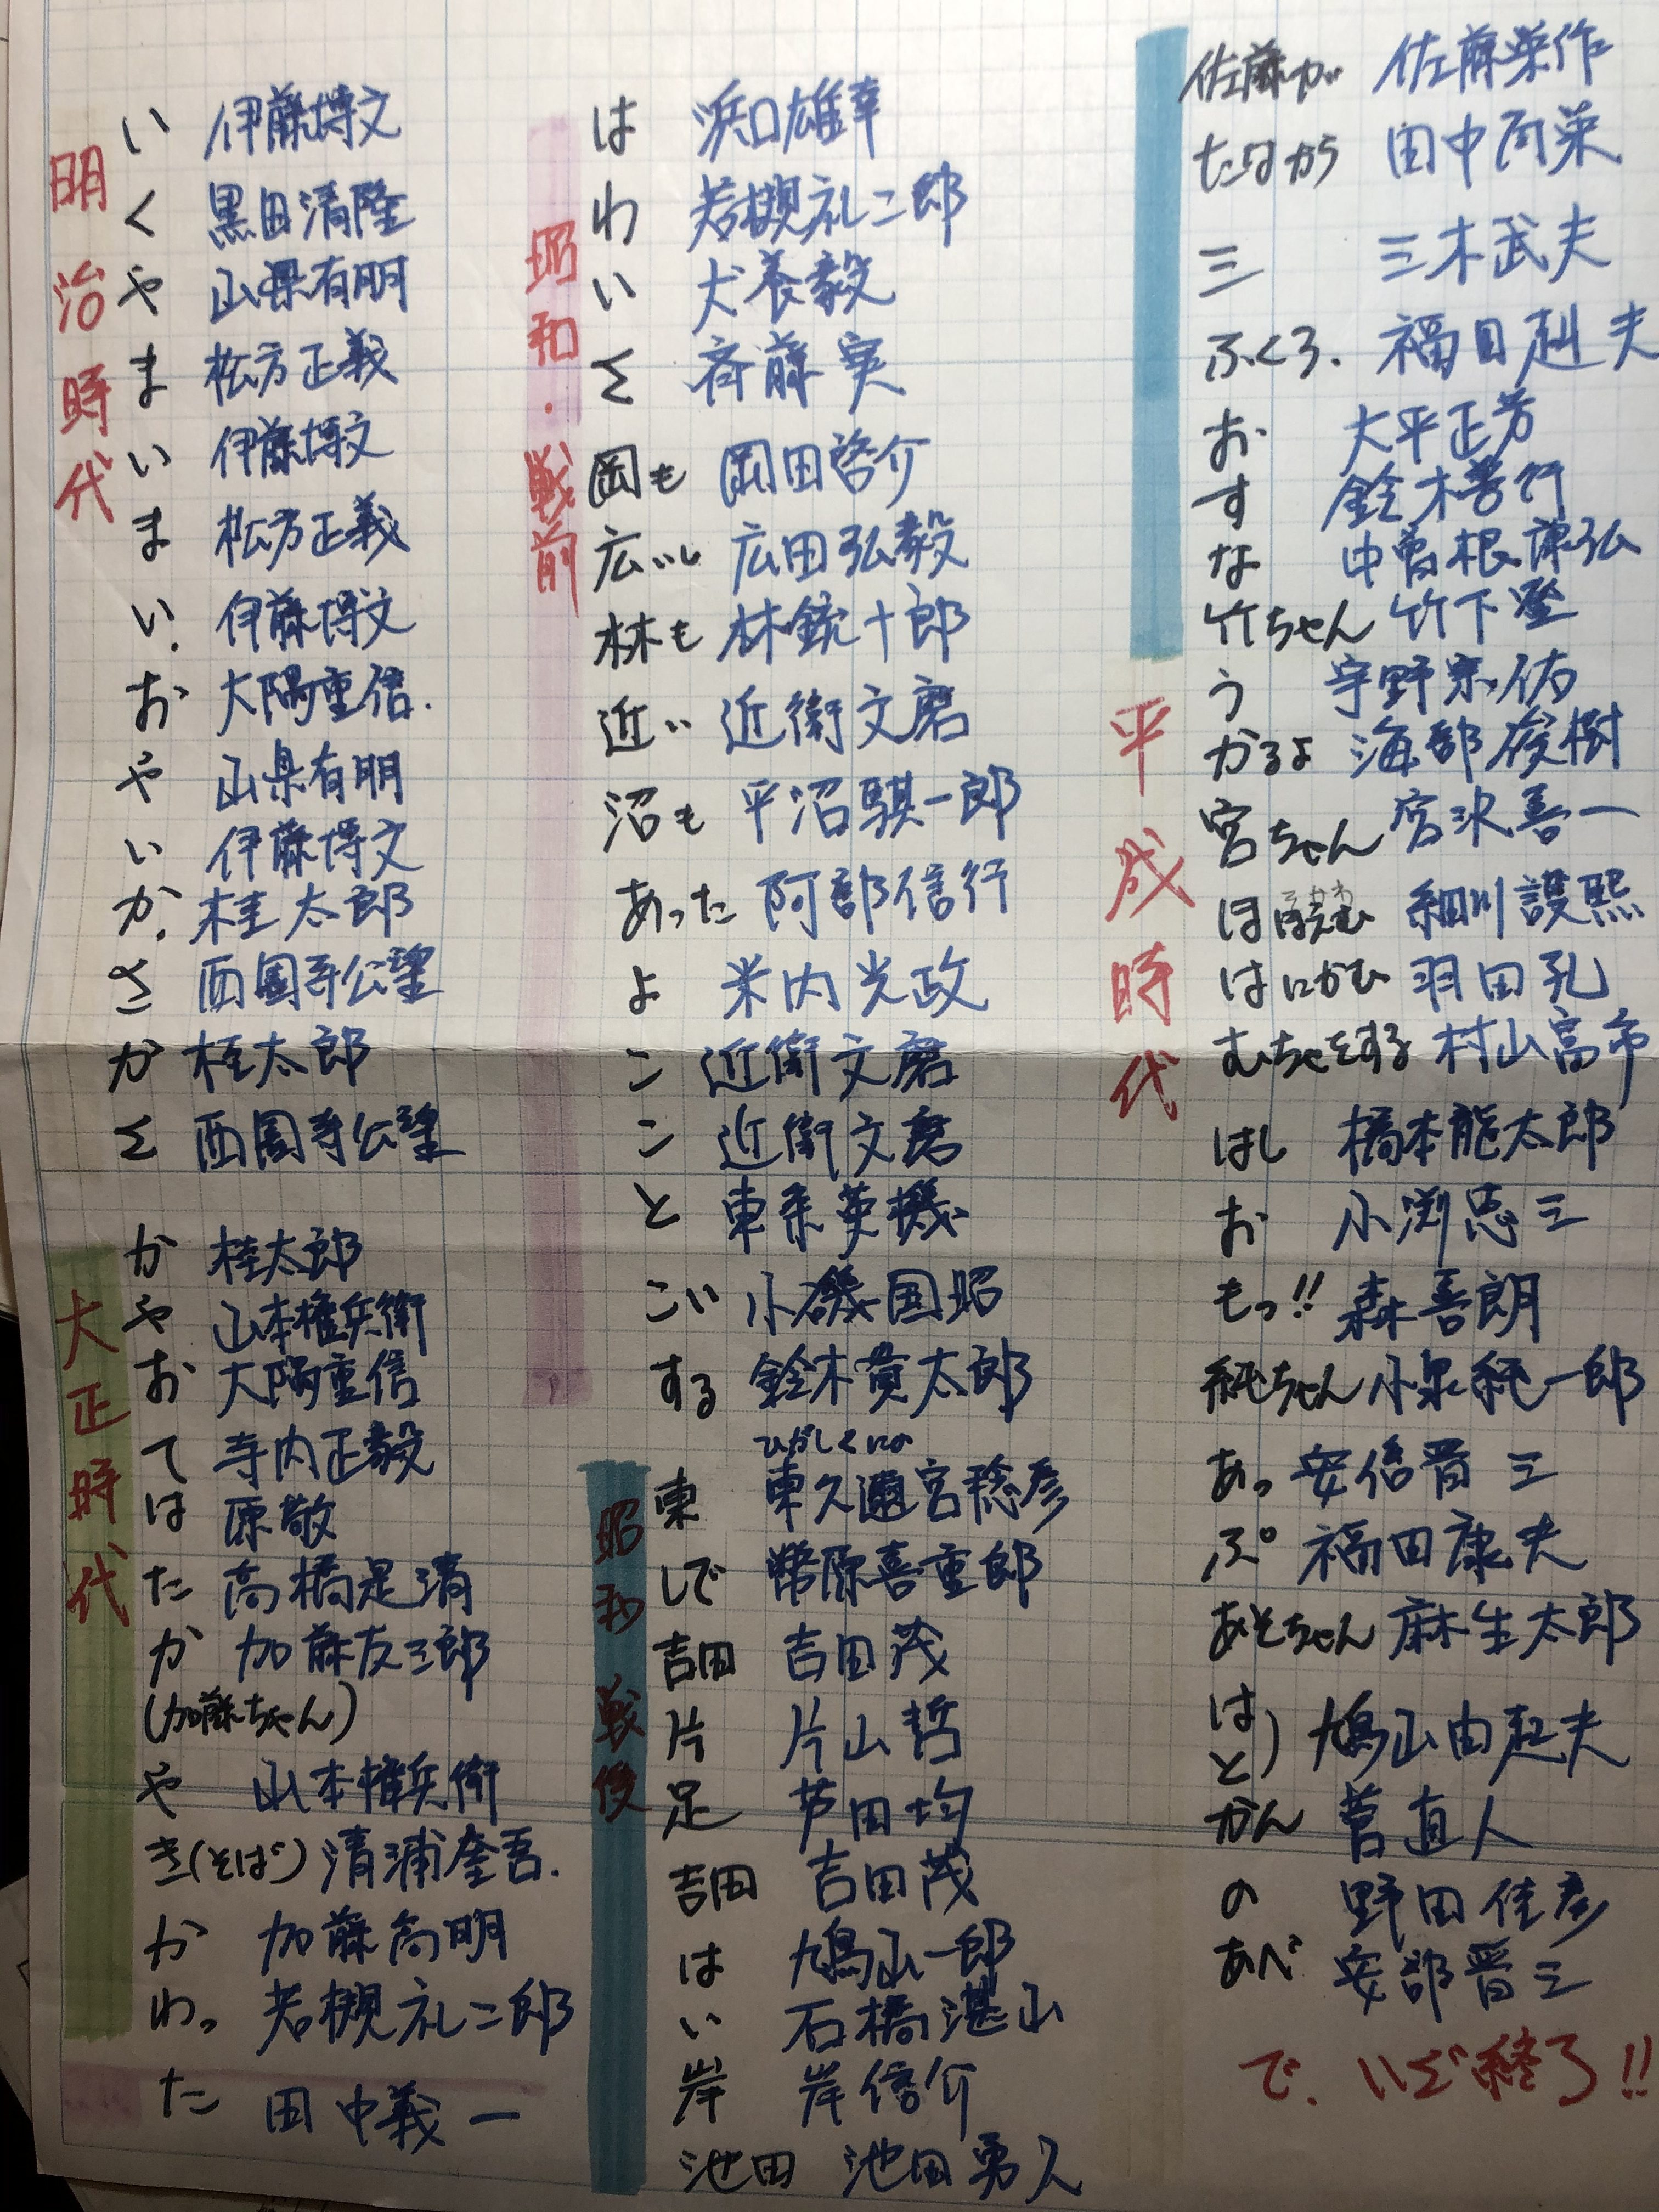 明治時代
い 伊藤博文
く 黒田清隆
や 山県有朋
ま 松方正義
い 伊藤博文
ま 松方正義
い. 伊藤博文
お 大隅重信.
や 山県有朋
い 伊藤博文
か. 桂太郎
さ 西園寺公望
か 桂太郎
さ 西園寺公望
大正時代
か 桂太郎
や 山本権兵衛
お 大隅重信
て 寺内正毅
は 原敬
た 高橋是清
か 加藤友三郎
(加藤ちゃん)
や 山本権兵衛
き(そば) 清浦奎吾.
か 加藤高明
わっ 若槻礼二郎
た 田中義一
昭和・戦前
は 浜口雄幸
わ 若槻礼二郎
い 犬養毅
さ 斉藤実
岡も 岡田啓介
広いし 広田弘毅
林も 林銑十郎
近い 近衛文麿
沼も 平沼騏一郎
あった 阿部信行
よ 米内光政
こ 近衛文麿
こ 近衛文麿
と 東条英機
こい 小磯国昭
する 鈴木貫太郎
昭和 戦後
ひがしくにの
東 東久邇宮稔彦
しで 幣原喜重郎
吉田 吉田茂
片 片山哲
足 芦田均
吉田 吉田茂
は 鳩山一郎
い 石橋湛山
岸 岸信介
池田 池田勇人
佐藤が 佐藤栄作
たなから 田中角栄
三 三木武夫
ふくろ. 福田赳夫
お 大平正芳
す 鈴木善行
な 中曽根康弘
竹ちゃん 竹下登
平成時代
う 宇野宗佑
かるよ 海部俊樹
宮ちゃん 宮沢喜一
ほほえむ 細川護熙
はにかむ 羽田孔
むちゃをする 村山富市
はし 橋本龍太郎
お 小渕恵三
もっ!! 森喜朗
純ちゃん 小泉純一郎
あっ 安倍晋三
ぷ 福田康夫
あそちゃん 麻生太郎
はと) 鳩山由起夫
かん 菅直人
の 野田佳彦
あべ 安部晋三
で. いざ終了!!